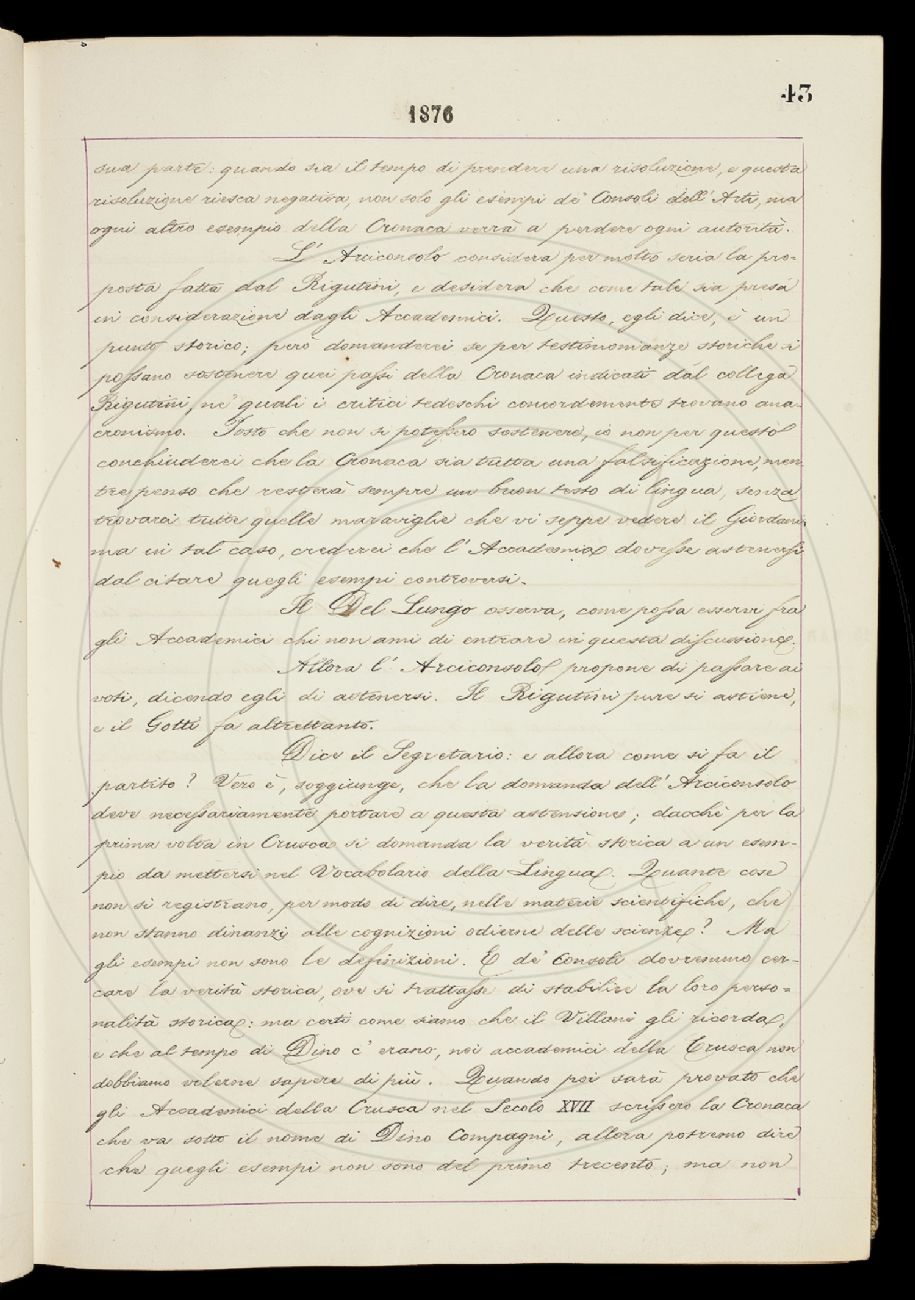 43
1876
sua parte: quando sia il tempo di prendere una risoluzione, e questa
risoluzione riesca negativa, non solo gli esempi de' Consoli dell'Arti, ma
ogni altro esempio della Cronaca verrà a perdere ogni autorità.
L' Arciconsolo considera per molto seria la pro-
posta fatta dal Rigutini, e desidera che come tale sia presa
in considerazione dagli Accademici. Questo, egli dice, è un
punto storico; però domanderei se per testimonianze storiche si
possano sostenere quei passi della Cronaca indicati dal collega
Rigutini, ne' quali i critici tedeschi concordemente trovano ana-
cronismo. Tosto che non si potessero sostenere, io non per questo
conchiuderei che la Cronaca sia tutta una falsificazione, men-
tre penso che resterà sempre un buon testo di lingua, senza
trovarci tutte quelle maraviglie che vi seppe vedere il Giordani,
ma in tal caso, crederei che l' Accademia dovesse astenersi
dal citare quegli esempi controversi.
Il Del Lungo osserva, come possa esservi fra
gli Accademici chi non ami di entrare in questa discussione.
Allora l' Arciconsolo propone di passare ai
voti, dicendo egli di astenersi. Il Rigutini pure si astiene,
e il Gotti fa altrettanto.
Dice il Segretario: e allora come si fa il
partito? Vero è, soggiunge, che la domanda dell' Arciconsolo
deve necessariamente portare a questa astensione; dacchè per la
prima volta in Crusca si domanda la verità storica a un esem-
pio da mettersi nel Vocabolario della Lingua. Quante cose
non si registrano, per modo di dire, nelle materie scientifiche, che
non stanno dinanzi alle cognizioni odierne delle scienze? Ma
gli esempi non sono le definizioni. E de' Consoli dovremmo cer-
care la verità storica, ove si trattasse di stabilire la loro perso-
nalità storica: ma certi come siamo che il Villani gli ricorda,
e che al tempo di Dino c' erano, noi accademici della Crusca non
dobbiamo volerne sapere di più. Quando poi sarà provato che
gli Accademici della Crusca nel Secolo XVII scrissero la Cronaca
che va sotto il nome di Dino Compagni, allora potremo dire
che quegli esempi non sono del primo trecento; ma non